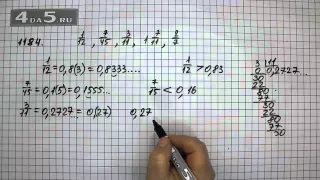 4da5.RU
1184.
1/12, 7/45, 3/11, 1 7/11, 8/7
1/12 = 0,8(3) = 0,8333.... 1/12 > 0,83
7/45 = 0,1(5) = 0,1555... 7/45 < 0,16
3/11 = 0,2727 = 0,(27) 0,27
3 | 11
0 0,2727
30
22
80
77
30
22
80
77
30